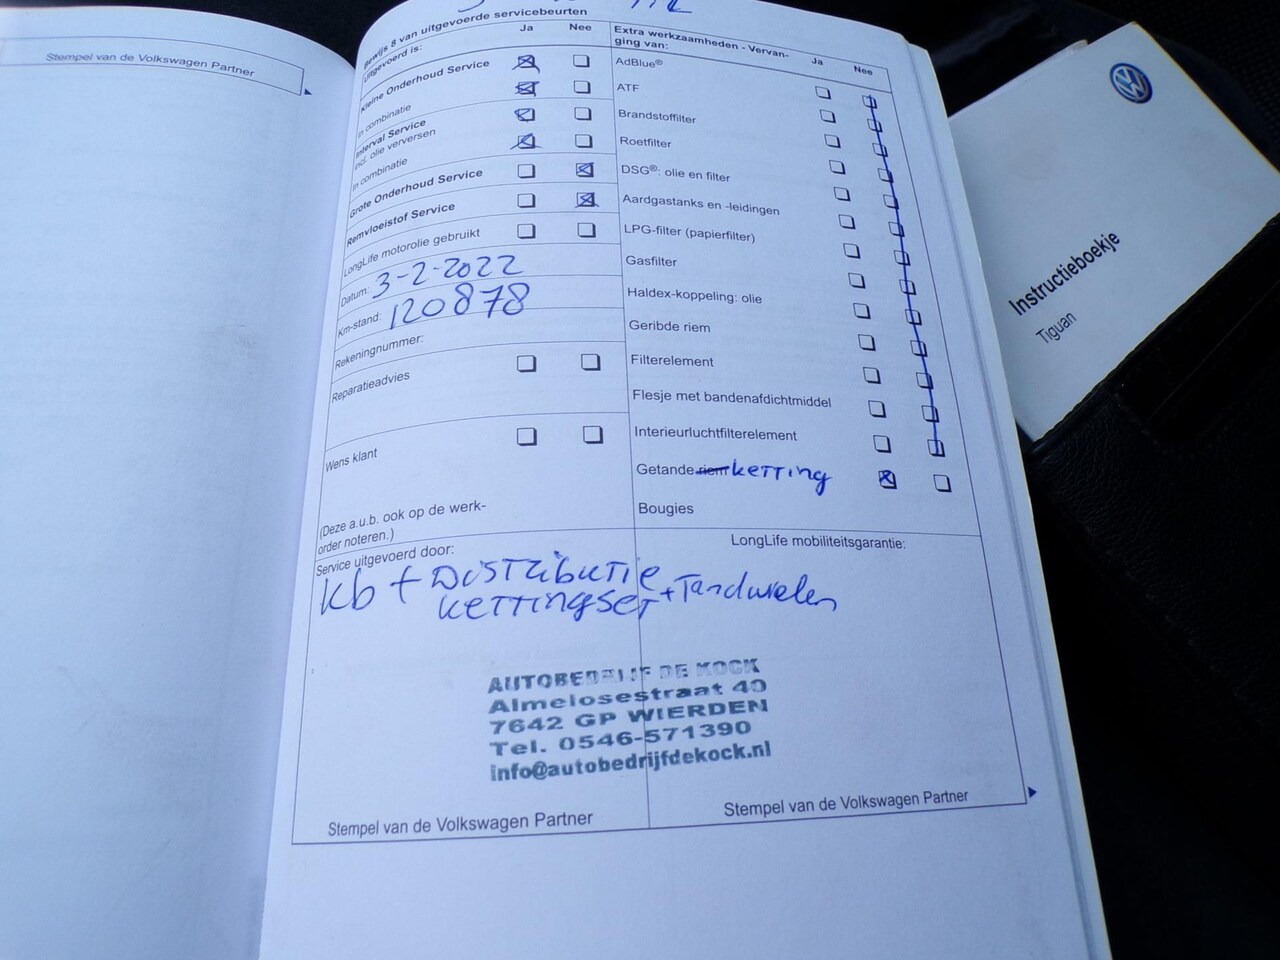 Stempel van de Volkswagen Partner
Bewijs 8 van uitgevoerde servicebeurten
Uitgevoerd is:
Ja
Nee
Kleine Onderhoud Service
In combinatie
Interval Service
incl. olie verversen
In combinatie
Grote Onderhoud Service
Remvloeistof Service
LongLife motorolie gebruikt
Datum: 3-2-2022
Km-stand: 120878
Rekeningnummer:
Reparatieadvies
Wens klant
(Deze a.u.b. ook op de werk-
order noteren.)
Extra werkzaamheden - Vervan-
ging van:
Ja
Nee
AdBlue®
ATF
Brandstoffilter
Roetfilter
DSG®: olie en filter
Aardgastanks en -leidingen
LPG-filter (papierfilter)
Gasfilter
Haldex-koppeling: olie
Geribde riem
Filterelement
Flesje met bandenafdichtmiddel
Interieurluchtfilterelement
Getande riem ketting
Bougies
Service uitgevoerd door:
LongLife mobiliteitsgarantie:
kb + Distributie
kettingset + Tandwielen
AUTOBEDRIJF DE KOCK
Almelosestraat 40
7642 GP WIERDEN
Tel. 0546-571390
info@autobedrijfdekock.nl
Stempel van de Volkswagen Partner
Stempel van de Volkswagen Partner
Instructieboekje
Tiguan